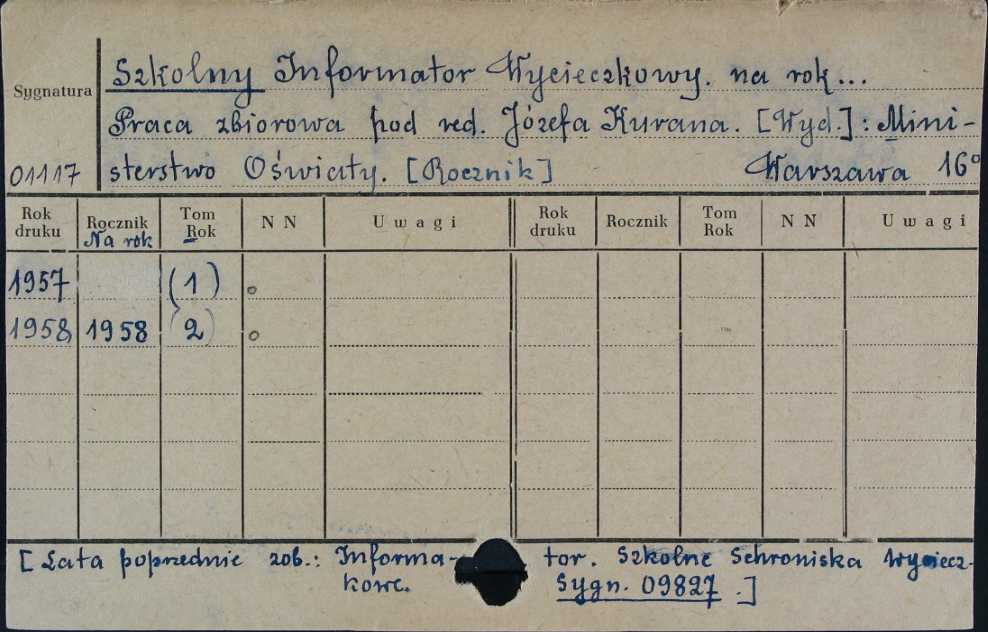 Szkolny Informator Wycieczkowy. na rok...
Sygnatura
Praca zbiorowa pod red. Józefa Kurana. [Wyd.]: Mini-
01117 sterstwo Oświaty. [Rocznik] Warszawa 16°
Rok druku Rocznik Na rok Tom Rok NN Uwagi Rok druku Rocznik Tom Rok NN Uwagi
1957 (1) o
1958 1958 (2) o
[Lata poprzednie zob.: Informa- tor. Szkolne Schroniska Wyciecz-
kowe. Sygn. 09827.]